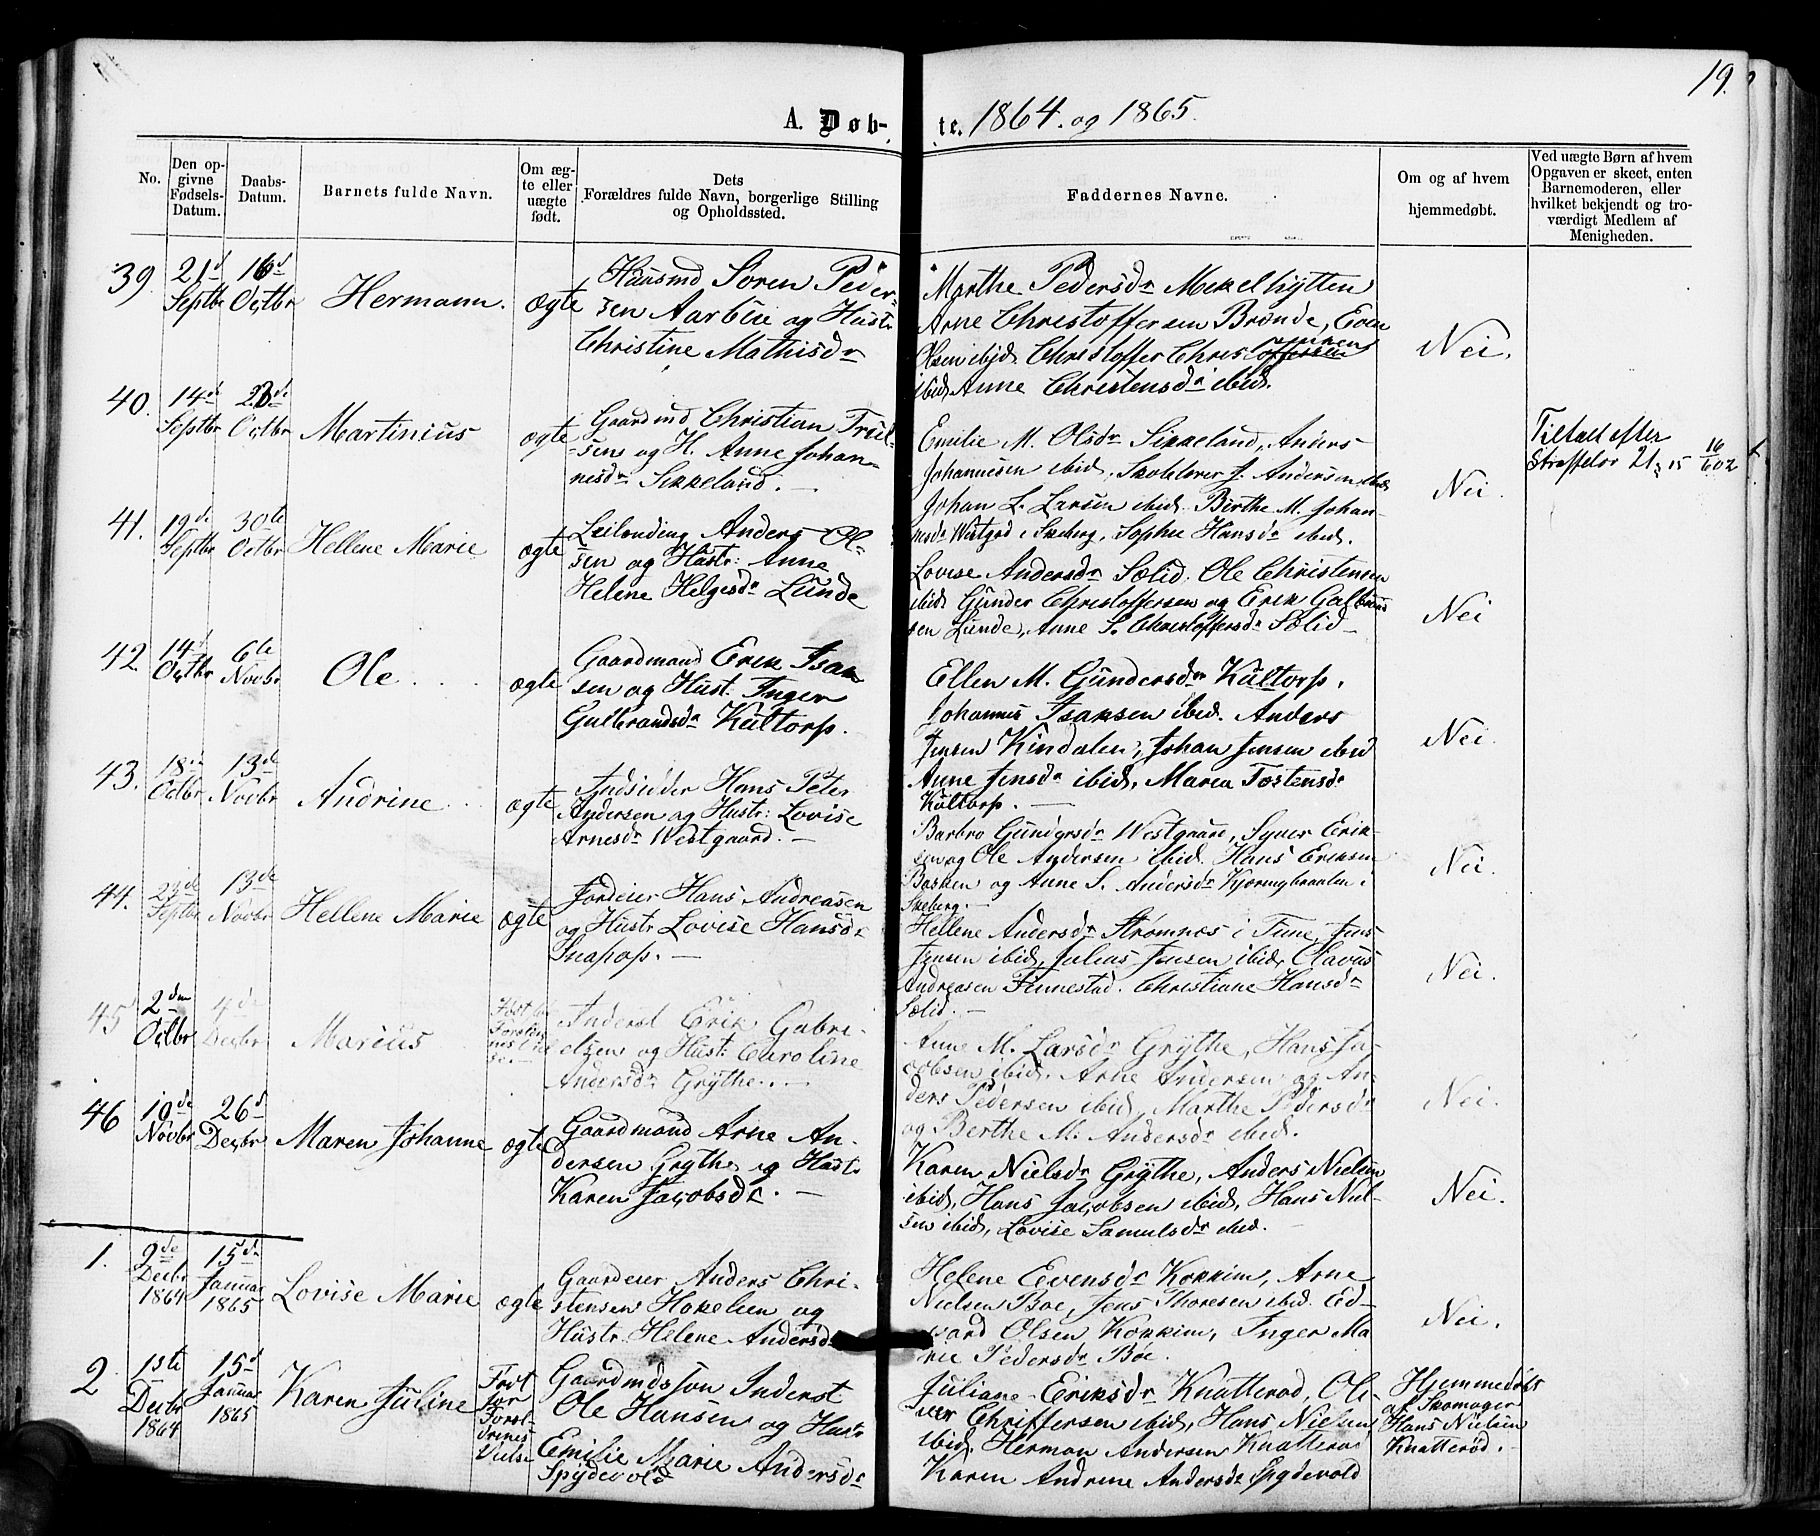 19.
A. Døb- te. 1864. og 1865.
No.
Den op-
givne
Fødsels-
Datum.
Daabs-
Datum.
Barnets fulde Navn.
Om æg-
te eller
uægte
født.
Dets
Forældres fulde Navn, borgerlige Stilling
og Opholdssted.
Faddernes Navne.
Om og af hvem
hjemmedøbt.
Ved uægte Børn af hvem
Opgaven er skeet, enten
Barnemoderen, eller
hvilket bekjendt og tro-
værdigt Medlem af
Menigheden.
39. 21d Septbr 16d Octbr Hermann. ægte
Huusmd Søren Peder-
sen Aarbue og Hustr.
Christine Mathisdr
Marthe Pedersdr Mekelhytten
Arne Christoffersen Brønde, Even
Olsen ibid. Christoffer
ibid Anne Christensdr ibid.
Nei.
40. 14de Septbr 23de Octbr Martinius ægte
Gaardmd Christian Truls-
sen og H. Anne Johan-
nesdr Sikkeland. —
Emilie M. Olsdr Sikkeland, Anders
Johannesen ibid, Skoelærer J. Andersen ibid
Johan L. Larsen ibid. Birthe M. Johan-
nesdr Westgrd i Skeberg, Sophie Hansdr ibid.
Nei.
Tiltalt efter
Straffelov 21, 15 16/6 02
41. 19de Septbr 30te Octbr Hellene Marie ægte
Leilending Anders Ol-
sen og Hustr: Anne
Helene Helgesdr Lunde
Lovise Andersdr Sølid. Ole Christensen
ibid Gunder Christoffersen og Erik Galbrans
sen Lunde, Anne S. Christoffersdr Sølid —
Nei
42. 14d Octbr 6te Novbr Ole ægte
Gaardmand Erik Isak
sen og Hust. Inger
Gulbrandsdr Kultorp.
Ellen M. Gundersdr Kultorp.
Johannes Isaksen ibid. Anders
Jensen Kindalen, Johan Jensen ibid
Anne Jensdr ibid, Maren Tostensdr
Kultorp. —
Nei.
43. 18de Octbr 13de Novbr Andrine ægte
Indsidder Hans Peter
Andersen og Hustr: Lovise
Arnesdr Westgaard. —
Barbro Gundersdr Westgaard, Syver Erik-
sen og Ole Andersen ibid. Hans Eriksen
Bakken og Anne S. Andersdr Kjerringbraaten i
Skeberg. —
Nei.
44. 23de Septbr 13de Novbr Hellene Marie ægte
Jordeier Hans Andreasen
og Hustr Lovise Hansdr
Snapop. —
Hellene Andersdr Strømnæs i Tune, Jens
Jensen ibid, Julius Jensen ibid, Olavus
Andreasen Finnestad. Christiane Hansdr
Sølid.
Nei.
45 2den Octbr 4de Decbr Marius
Født før Forældrenes Vielse. —
Inderst Erik Gabri-
elsen og Hust: Caroline
Andersdr Grythe. —
Anne M. Larsdr Grythe, Hans Ja-
cobsen ibid. Arne Andersen og An-
ders Pedersen ibid, Marthe Pedersdr
og Berthe M. Andersdr ibid.
Nei.
46 19de Novbr 26d Decbr Maren Johanne ægte
Gaardmand Arne An-
dersen Grythe og Hustr
Karen Jacobsdr. —
Karen Nielsdr Grythe, Anders Nielsen
ibid, Hans Jacobsen ibid, Hans Niel-
sen ibid, Lovise Samulsdr ibid.
Nei.
1. 9de Decbr 1864 15de Januar 1865 Lovise Marie ægte
Gaardeier Anders Chri-
stensen Hokelien og
Hustr. Helene Andersdr
Helene Evensdr Kokkim, Arne
Nielsen Boe, Jens Thoresen ibid. Ed-
ward Olsen Kokkim, Inger Ma
rie Pedersdr Boe.
Nei.
2 1ste Decbr 1864 15d Januar 1865 Karen Juline
Født før Forældrenes Vielse
Gaardmdsøn Inderst
Ole Hansen og Hustr
Emilie Marie Andersdr
Spydevold
Juliane Eriksdr Knatterød, Ole-
ver Christfersen ibid, Hans Nielsen,
ibid. Herman Andersen Knatterød
Karen Andrene Andersdr Spydevold
Hjemmedøbt
af Skomager
Hans Nielsen
Knatterød. —